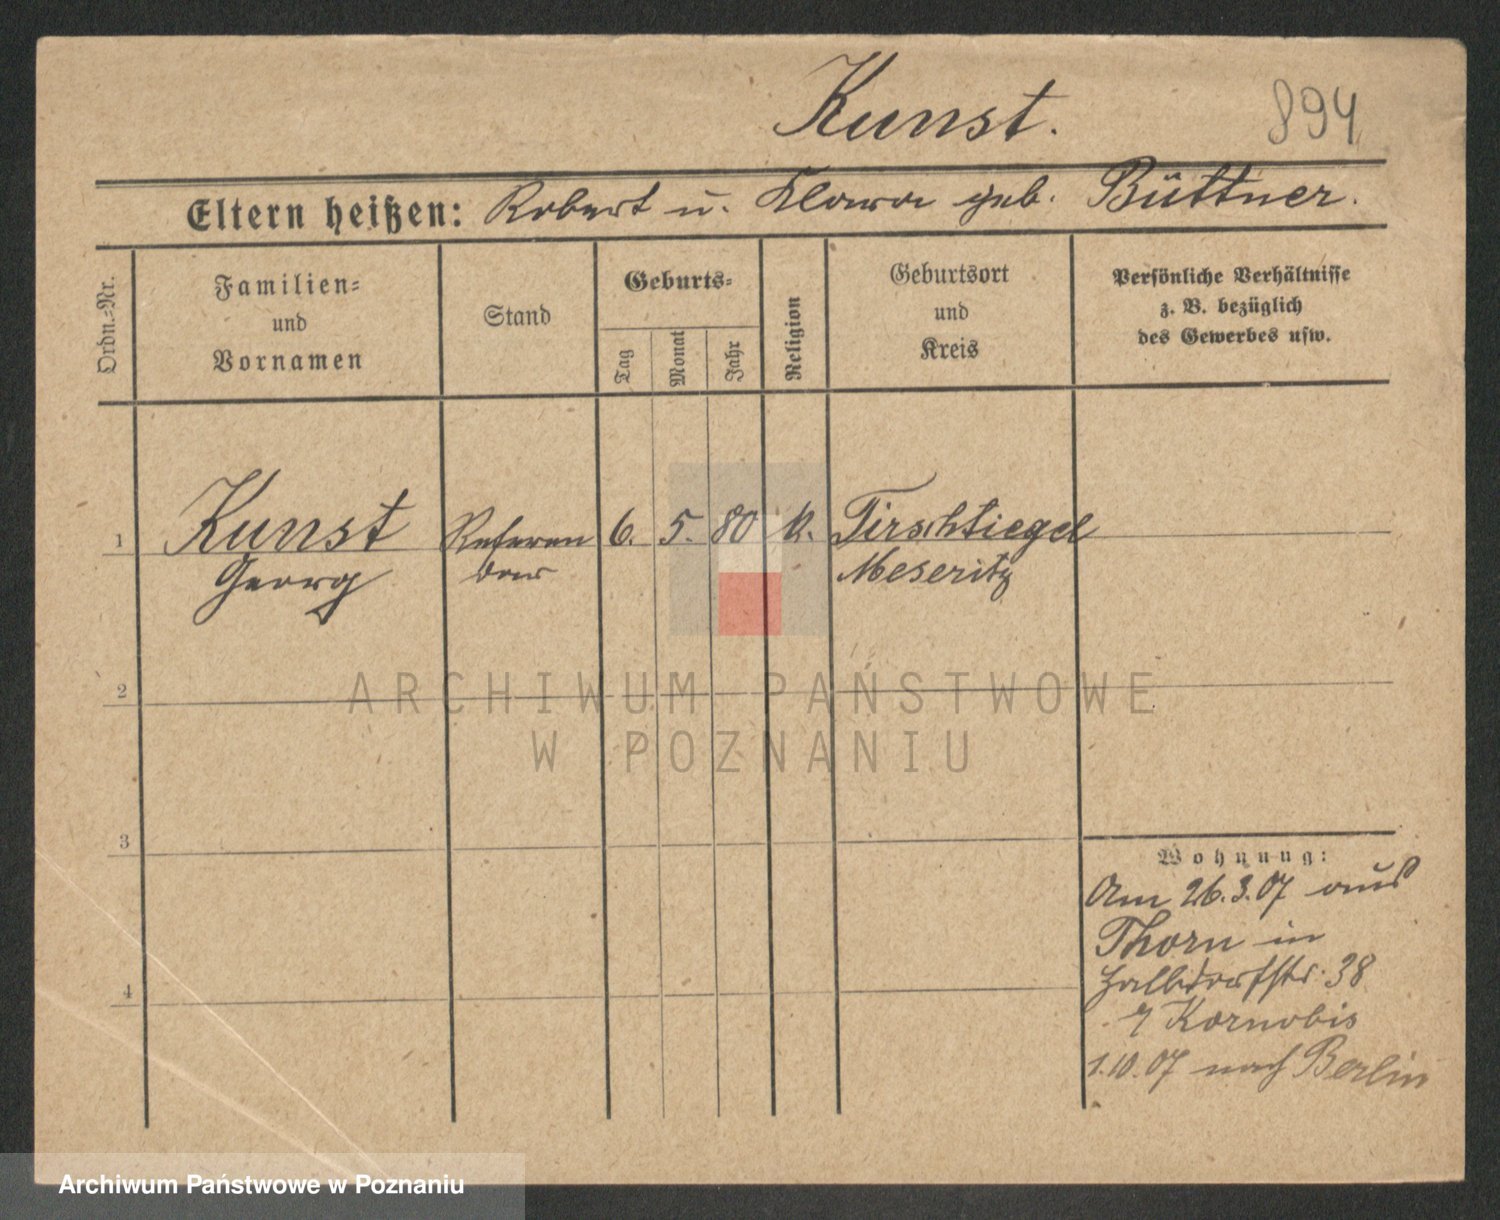 Kunst.
894
Eltern heißen: Robert u. Klara geb. Büttner.
Ordn.=Nr.
Familien=
und
Vornamen
Stand
Geburts=
Tag
Monat
Jahr
Religion
Geburtsort
und
Kreis
Persönliche Verhältnisse
z. B. bezüglich
des Gewerbes usw.
1
Kunst
Georg
Referen
dar
6. 5. 80 k.
Tirschtiegel
Meseritz
2
3
4
Wohnung:
Am 26.3.07 aus
Thorn in
Halbdorfstr. 38
Kornobis
1.10.07 nach Berlin
ARCHIWUM PAŃSTWOWE
W POZNANIU
Archiwum Państwowe w Poznaniu